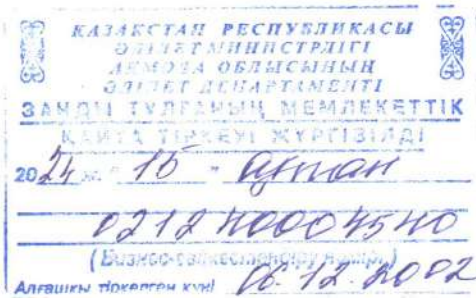 ҚАЗАҚСТАН РЕСПУБЛИКАСЫ
ӘДІЛЕТ МИНИСТРЛІГІ
АҚМОЛА ОБЛЫСЫНЫҢ
ӘДІЛЕТ ДЕПАРТАМЕНТІ
ЗАҢДЫ ТҰЛҒАНЫҢ МЕМЛЕКЕТТІК
ҚАЙТА ТІРКЕУІ ЖҮРГІЗІЛДІ
2024 ж. "15" ақпан
021240004540
(Бизнес-сәйкестендіру нөмірі)
Алғашқы тіркелген күні 06.12.2002